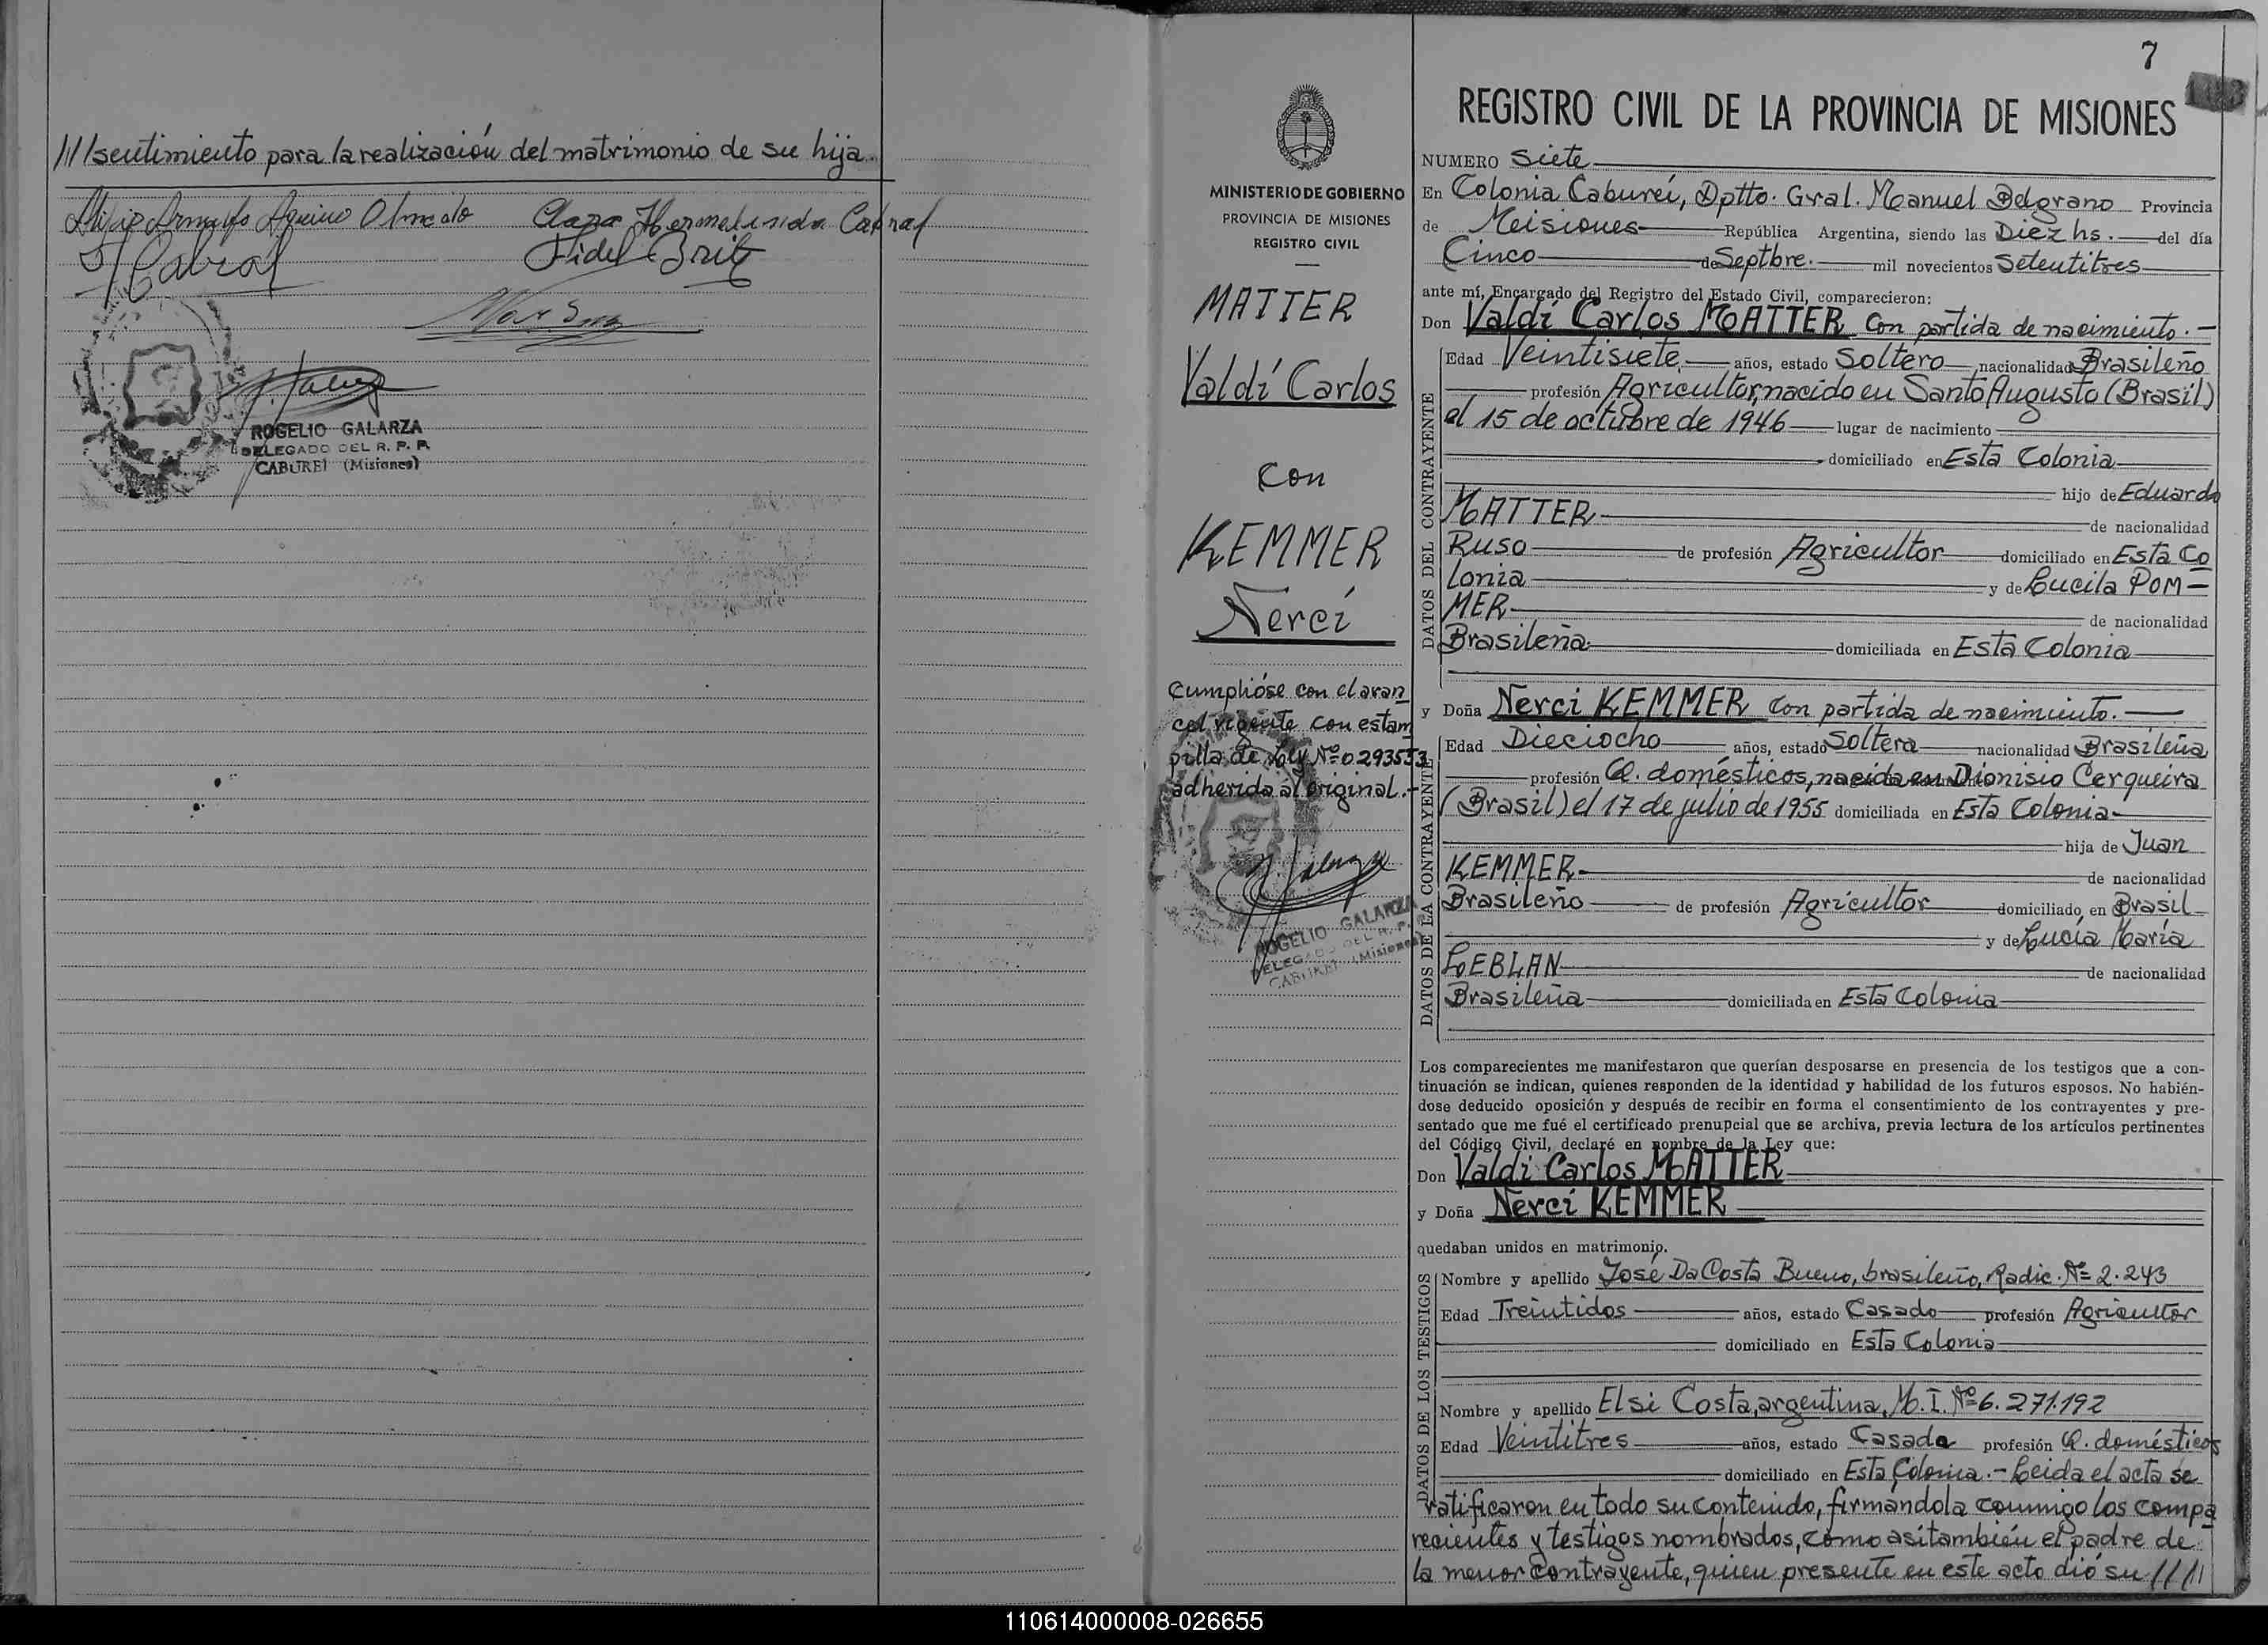 ///sentimiento para la realización del matrimonio de su hija.
Clara Hermelinda Cabral
Cabral
Fidel Britz
ROGELIO GALARZA
DELEGADO DEL R. P. P.
CABUREI (Misiones)
MINISTERIO DE GOBIERNO
PROVINCIA DE MISIONES
REGISTRO CIVIL
MATTER
Valdí Carlos
con
KEMMER
Nerci
Cumplióse con el aran
cel vigente con estam
pilla de Ley Nº 0293553
adherida al original.-
ROGELIO GALARZA
DELEGADO DEL R. P.
CABUREI (Misiones)
7
REGISTRO CIVIL DE LA PROVINCIA DE MISIONES
NUMERO Siete
En Colonia Cabureí, Dptto. Gral. Manuel Belgrano Provincia
de Misiones República Argentina, siendo las Diez hs. del día
Cinco de Septbre. mil novecientos Setentitres
ante mí, Encargado del Registro del Estado Civil, comparecieron:
Don Valdí Carlos MATTER con partida de nacimiento.-
Edad Veintisiete años, estado Soltero nacionalidad Brasileño
profesión Agricultor, nacido en Santo Augusto (Brasil)
el 15 de octubre de 1946 lugar de nacimiento
domiciliado en Esta Colonia
hijo de Eduardo
MATTER de nacionalidad
Ruso de profesión Agricultor domiciliado en Esta Co
lonia y de Lucila POM-
MER de nacionalidad
Brasileña domiciliada en Esta Colonia
DATOS DEL CONTRAYENTE
y Doña Nerci KEMMER con partida de nacimiento.
Edad Dieciocho años, estado Soltera nacionalidad Brasileña
profesión Q. domésticos, nacida en Dionisio Cerqueira
(Brasil) el 17 de julio de 1955 domiciliada en Esta Colonia
hija de Juan
KEMMER de nacionalidad
Brasileño de profesión Agricultor domiciliado en Brasil
y de Lucía María
LEBLAN de nacionalidad
Brasileña domiciliada en Esta Colonia
DATOS DE LA CONTRAYENTE
Los comparecientes me manifestaron que querían desposarse en presencia de los testigos que a con-
tinuación se indican, quienes responden de la identidad y habilidad de los futuros esposos. No habién-
dose deducido oposición y después de recibir en forma el consentimiento de los contrayentes y pre-
sentado que me fué el certificado prenupcial que se archiva, previa lectura de los artículos pertinentes
del Código Civil, declaré en nombre de la Ley que:
Don Valdi Carlos MATTER
y Doña Nerci KEMMER
quedaban unidos en matrimonio.
Nombre y apellido José Da Costa Bueno, brasileño, Radic. Nº 2.243
Edad Treintidos años, estado Casado profesión Agricultor
domiciliado en Esta Colonia
Nombre y apellido Elsi Costa, argentina, M.I. Nº 6.271.192
Edad Veintitres años, estado Casada profesión Q. domésticos
domiciliado en Esta Colonia.- Leida el acta se
DATOS DE LOS TESTIGOS
ratificaron en todo su contenido, firmándola conmigo los compa
recientes y testigos nombrados, como asítambién el padre de
la menor contrayente, quien presente en este acto dió su ////
110614000008-026655